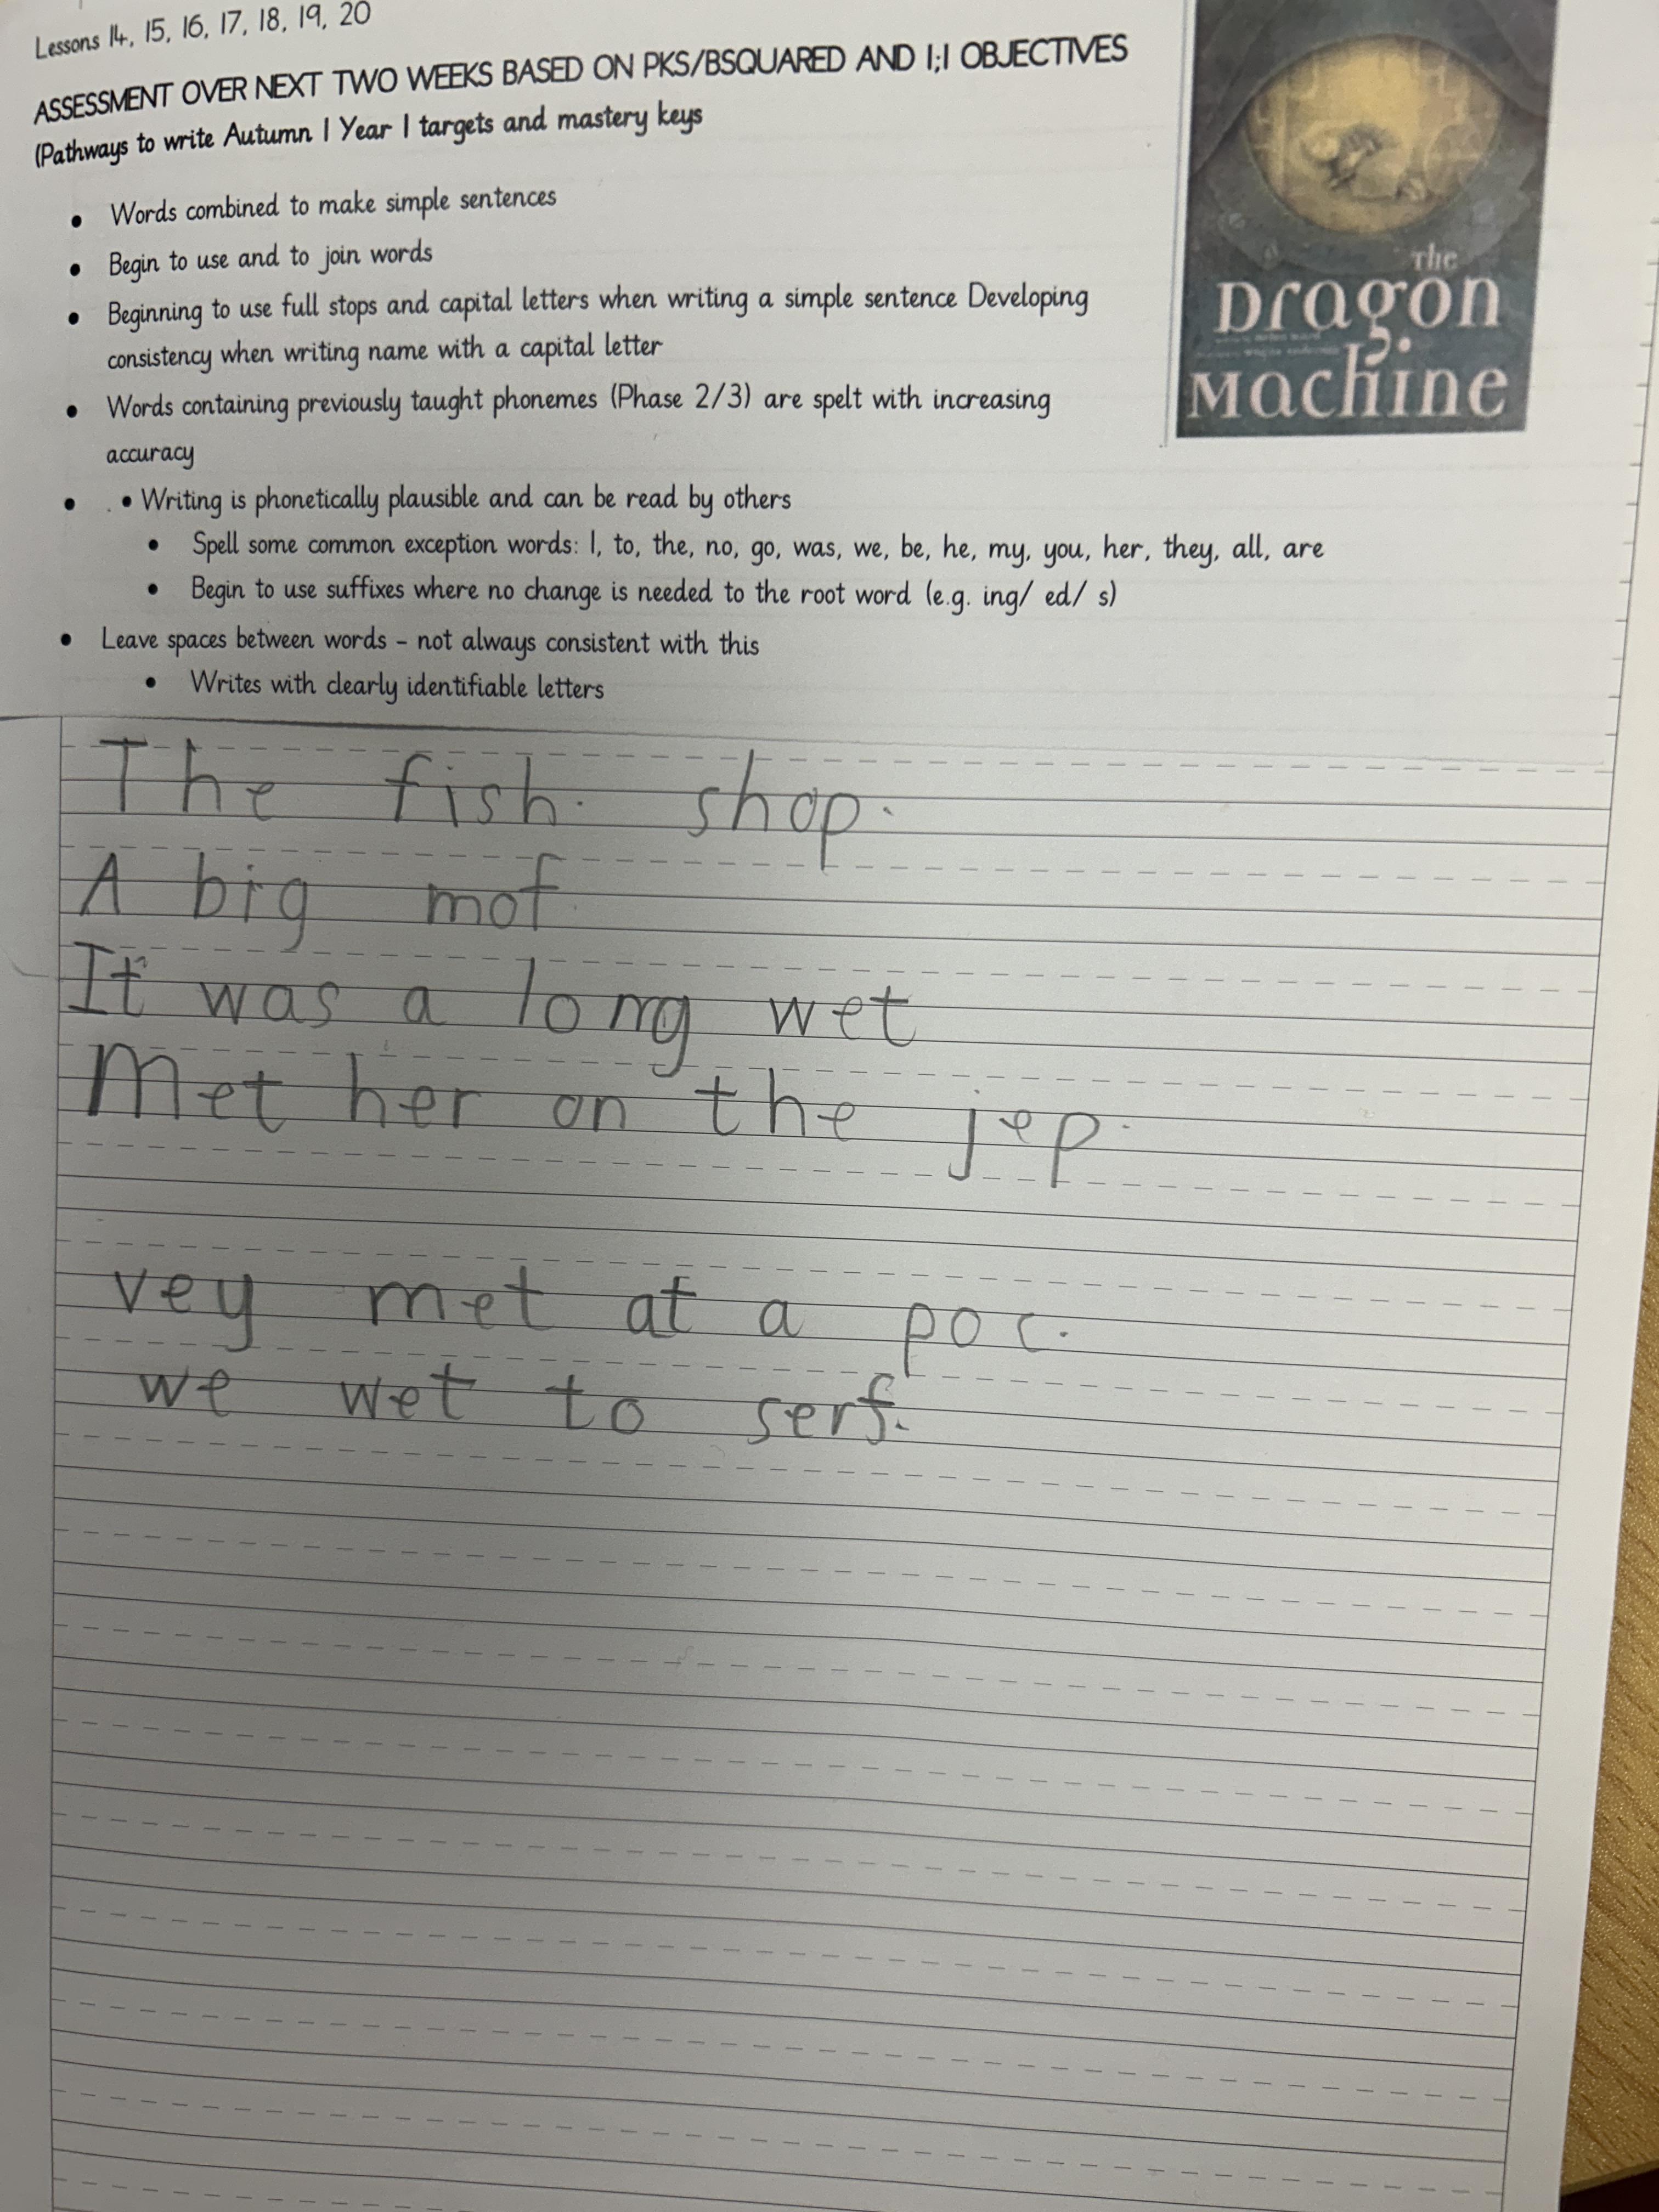 Lessons 14, 15, 16, 17, 18, 19, 20
ASSESSMENT OVER NEXT TWO WEEKS BASED ON PKS/BSQUARED AND 1;1 OBJECTIVES
(Pathways to write Autumn 1 Year 1 targets and mastery keys
• Words combined to make simple sentences
• Begin to use and to join words
• Beginning to use full stops and capital letters when writing a simple sentence Developing
consistency when writing name with a capital letter
• Words containing previously taught phonemes (Phase 2/3) are spelt with increasing
accuracy
• . • Writing is phonetically plausible and can be read by others
• Spell some common exception words: I, to, the, no, go, was, we, be, he, my, you, her, they, all, are
• Begin to use suffixes where no change is needed to the root word (e.g. ing/ ed/ s)
• Leave spaces between words – not always consistent with this
• Writes with clearly identifiable letters
The
Dragon
Machine
The fish. shop.
A big mof.
It was a long wet
Met her on the jep.
vey met at a poc.
we wet to serf.